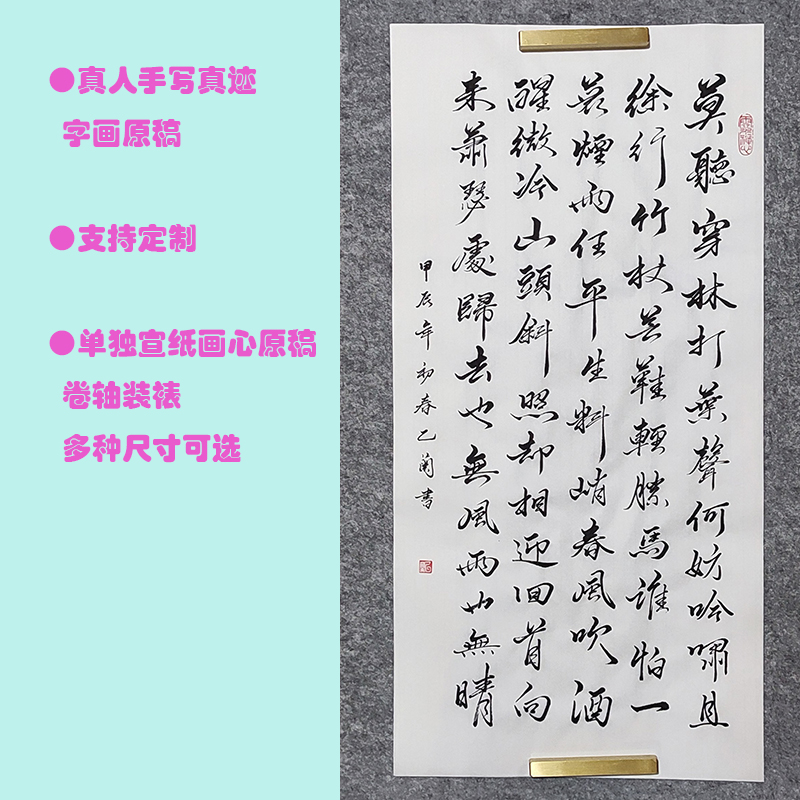 ●真人手写真迹
字画原稿
●支持定制
●单独宣纸画心原稿
卷轴装裱
多种尺寸可选
莫聽穿林打葉聲何妨吟嘯且
徐行竹杖芒鞋輕勝馬誰怕一
蓑煙雨任平生料峭春風吹酒
醒微冷山頭斜照却相迎回首向
来蕭瑟處歸去也無風雨也無晴
甲辰年初春乙蘭書